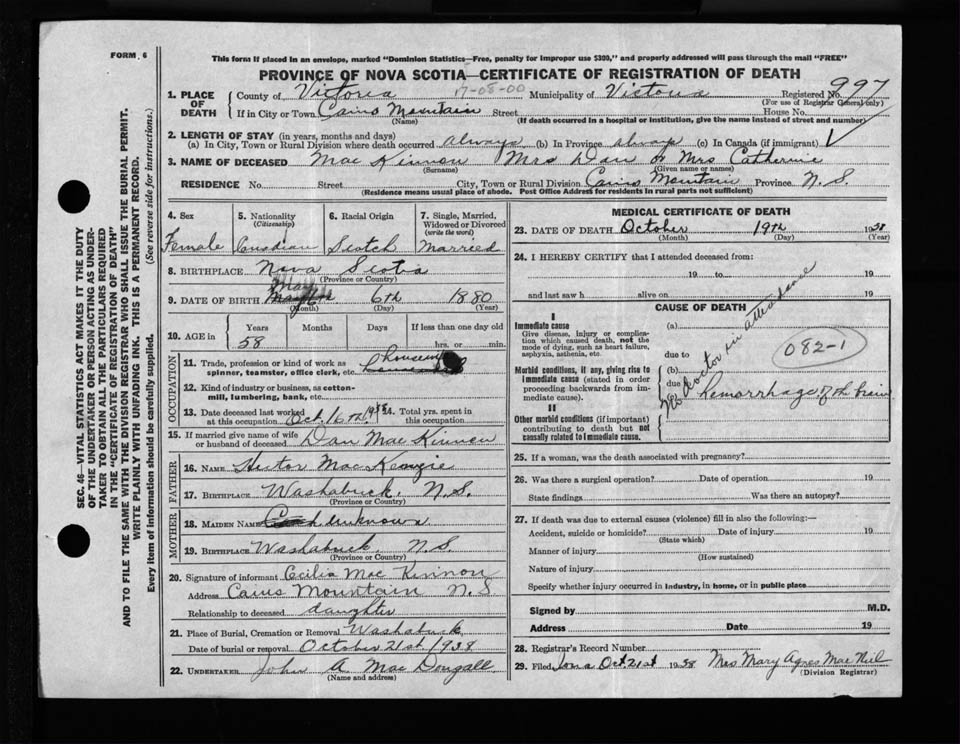 FORM 6
This form if placed in an envelope, marked "Dominion Statistics—Free, penalty for improper use $300," and properly addressed will pass through the mail "FREE"
PROVINCE OF NOVA SCOTIA—CERTIFICATE OF REGISTRATION OF DEATH
SEC. 46—VITAL STATISTICS ACT MAKES IT THE DUTY
OF THE UNDERTAKER OR PERSON ACTING AS UNDER-
TAKER TO OBTAIN ALL THE PARTICULARS REQUIRED
IN THE "CERTIFICATE OF REGISTRATION OF DEATH"
AND TO FILE THE SAME WITH THE DIVISION REGISTRAR WHO SHALL ISSUE THE BURIAL PERMIT.
WRITE PLAINLY WITH UNFADING INK. THIS IS A PERMANENT RECORD.
Every item of information should be carefully supplied. (See reverse side for instructions.)
1. PLACE OF DEATH
County of Victoria 17-08-00 Municipality of Victoria Registered No. 997
(For use of Registrar General only)
If in City or Town Cains Mountain Street House No.
(Name) (If death occurred in a hospital or institution, give the name instead of street and number)
2. LENGTH OF STAY (in years, months and days)
(a) In City, Town or Rural Division where death occurred always (b) In Province always (c) In Canada (if immigrant)
3. NAME OF DECEASED Mac Kinnon Mrs Dan or Mrs Catherine
(Surname) (Given name or names)
RESIDENCE No. Street City, Town or Rural Division Cains Mountain Province N.S.
(Residence means usual place of abode. Post Office Address for residents in rural parts not sufficient)
4. Sex Female
5. Nationality (Citizenship) Canadian
6. Racial Origin Scotch
7. Single, Married, Widowed or Divorced (write the word) Married
8. BIRTHPLACE Nova Scotia
(Province or Country)
9. DATE OF BIRTH May 6th 1880
(Month) (Day) (Year)
10. AGE in Years Months Days If less than one day old
58 hrs. or min.
OCCUPATION
11. Trade, profession or kind of work as
spinner, teamster, office clerk, etc.
12. Kind of industry or business, as cotton-
mill, lumbering, bank, etc.
13. Date deceased last worked at this occupation Oct. 16th 1938
14. Total yrs. spent in this occupation
15. If married give name of wife or husband of deceased Dan Mac Kinnon
FATHER
16. NAME Hector Mac Kenzie
17. BIRTHPLACE Washabuck, N.S.
(Province or Country)
MOTHER
18. MAIDEN NAME unknown
19. BIRTHPLACE Washabuck, N.S.
(Province or Country)
20. Signature of informant Cecilia Mac Kinnon
Address Cains Mountain N.S
Relationship to deceased daughter
21. Place of Burial, Cremation or Removal Washabuck
Date of burial or removal October 21st 1938
22. UNDERTAKER John A Mac Dougall
(Name and address)
MEDICAL CERTIFICATE OF DEATH
23. DATE OF DEATH October 19th 1938
(Month) (Day) (Year)
24. I HEREBY CERTIFY that I attended deceased from:
19 to 19
and last saw h alive on 19
CAUSE OF DEATH
I
Immediate cause
Give disease, injury or complica-
tion which caused death, not the
mode of dying, such as heart failure,
asphyxia, asthenia, etc.
Morbid conditions, if any, giving rise to
immediate cause (stated in order
proceeding backwards from im-
mediate cause).
II
Other morbid conditions (if important)
contributing to death but not
causally related to immediate cause.
(a)
due to
(b)
due to
No Doctor in attendance
082-1
Hemorrhage of th brain
25. If a woman, was the death associated with pregnancy?
26. Was there a surgical operation? Date of operation 19
State findings Was there an autopsy?
27. If death was due to external causes (violence) fill in also the following:—
Accident, suicide or homicide? Date of injury 19
(State which)
Manner of injury
(How sustained)
Nature of injury
Specify whether injury occurred in industry, in home, or in public place
Signed by M.D.
Address Date 19
28. Registrar's Record Number
29. Filed Iona Oct. 21st 1938 Mrs Mary Agnes Mac Neil
(Division Registrar)